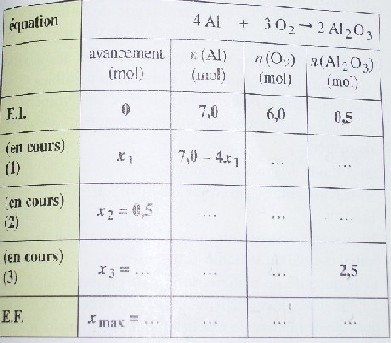 équation 4 Al + 3 O₂ → 2 Al₂O₃
avancement (mol) n (Al) (mol) n (O₂) (mol) n (Al₂O₃) (mol)
E.I. 0 7,0 6,0 0,5
(en cours) (1) x₁ 7,0 – 4x₁ ... ...
(en cours) (2) x₂ = 0,5 ... ... ...
(en cours) (3) x₃ = ... ... ... 2,5
E.F. x max = ... ... ... ...